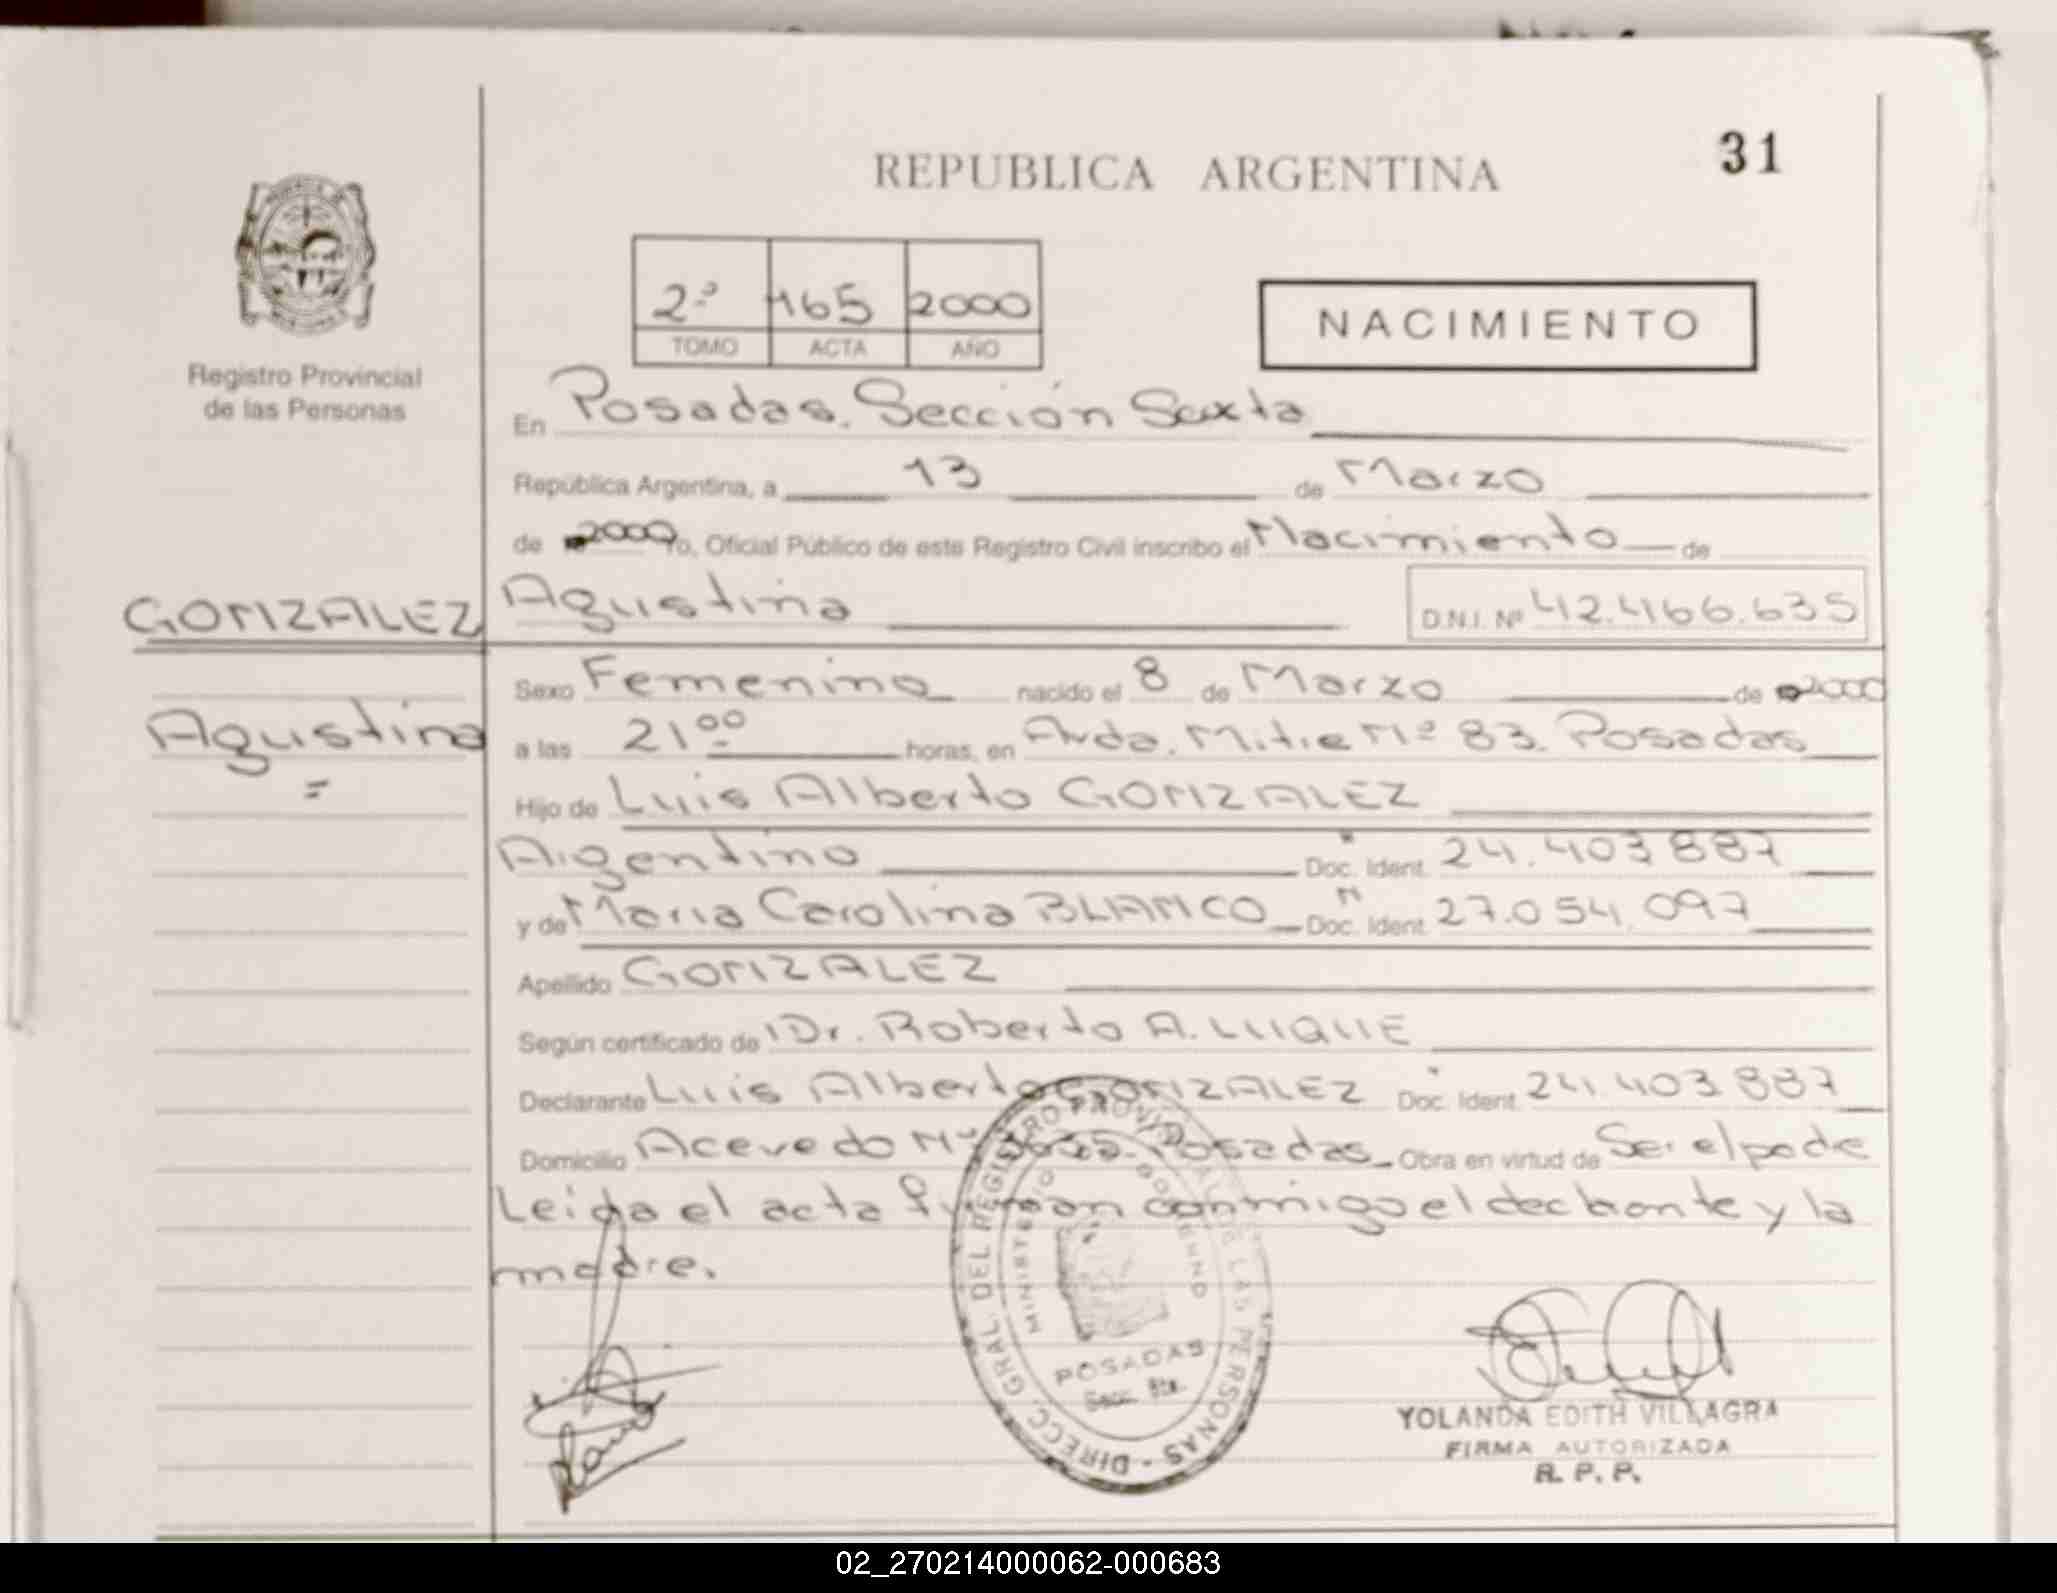 31
REPUBLICA ARGENTINA
2º 165 2000
TOMO ACTA AÑO
NACIMIENTO
Registro Provincial
de las Personas
En Posadas. Sección Sexta
República Argentina, a 13 de Marzo
de 2000 Yo, Oficial Público de este Registro Civil inscribo el Nacimiento de
GONZALEZ Agustina D.N.I. Nº 42.466.635
Sexo Femenino nacido el 8 de Marzo de 2000
Agustina a las 21⁰⁰ horas, en Avda. Mitre Nº 83. Posadas
Hijo de Luis Alberto GONZALEZ
Argentino Doc. Ident. 24.403887
y de Maria Carolina BLANCO Doc. Ident. 27.054.097
Apellido GONZALEZ
Según certificado de Dr. Roberto A. LUQUE
Declarante Luis Alberto GONZALEZ Doc. Ident. 24.403887
Domicilio Acevedo Nº Posadas Obra en virtud de Ser el padre
Leida el acta firman conmigo el declarante y la
madre.
DIRECC. GRAL. DEL REGISTRO PROVINCIAL DE LAS PERSONAS
MINISTERIO GOBIERNO
POSADAS
Secc. 6ta.
YOLANDA EDITH VILLAGRA
FIRMA AUTORIZADA
R. P. P.
02_270214000062-000683